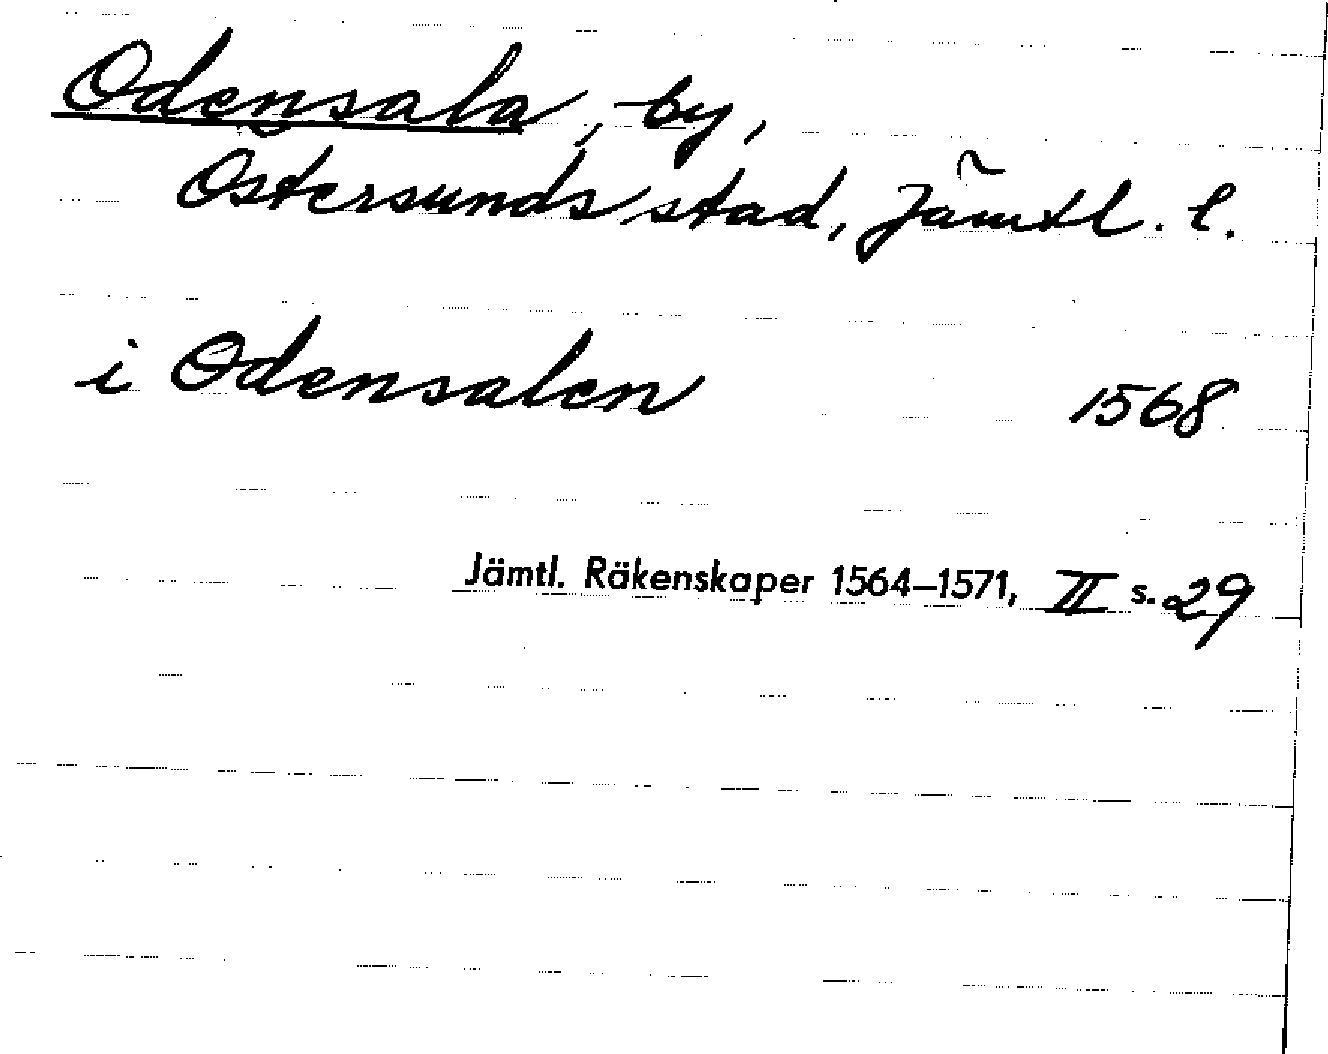 Odensala, by,
Östersunds stad, Jämtl. l.
i Odensalen 1568
Jämtl. Räkenskaper 1564–1571, II s. 29